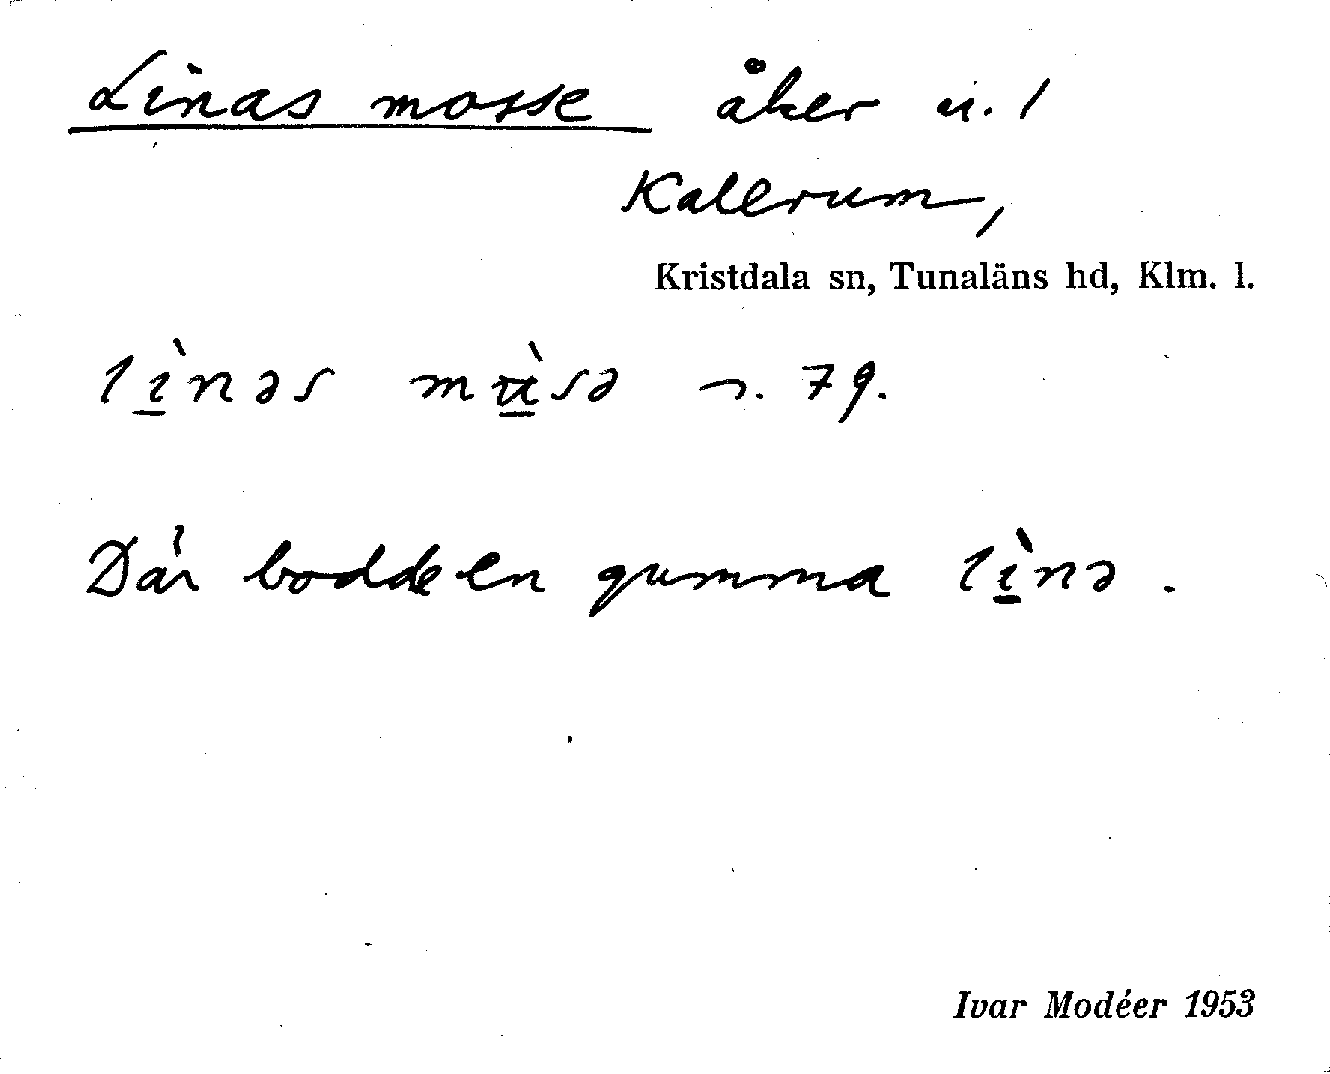 Linas mosse åker n. 1
Kallerum,
Kristdala sn, Tunaläns hd, Klm. l.
lı̲̀nəs mù̲sə 79.
Där bodde en gumma lı̲̀nə.
Ivar Modéer 1953